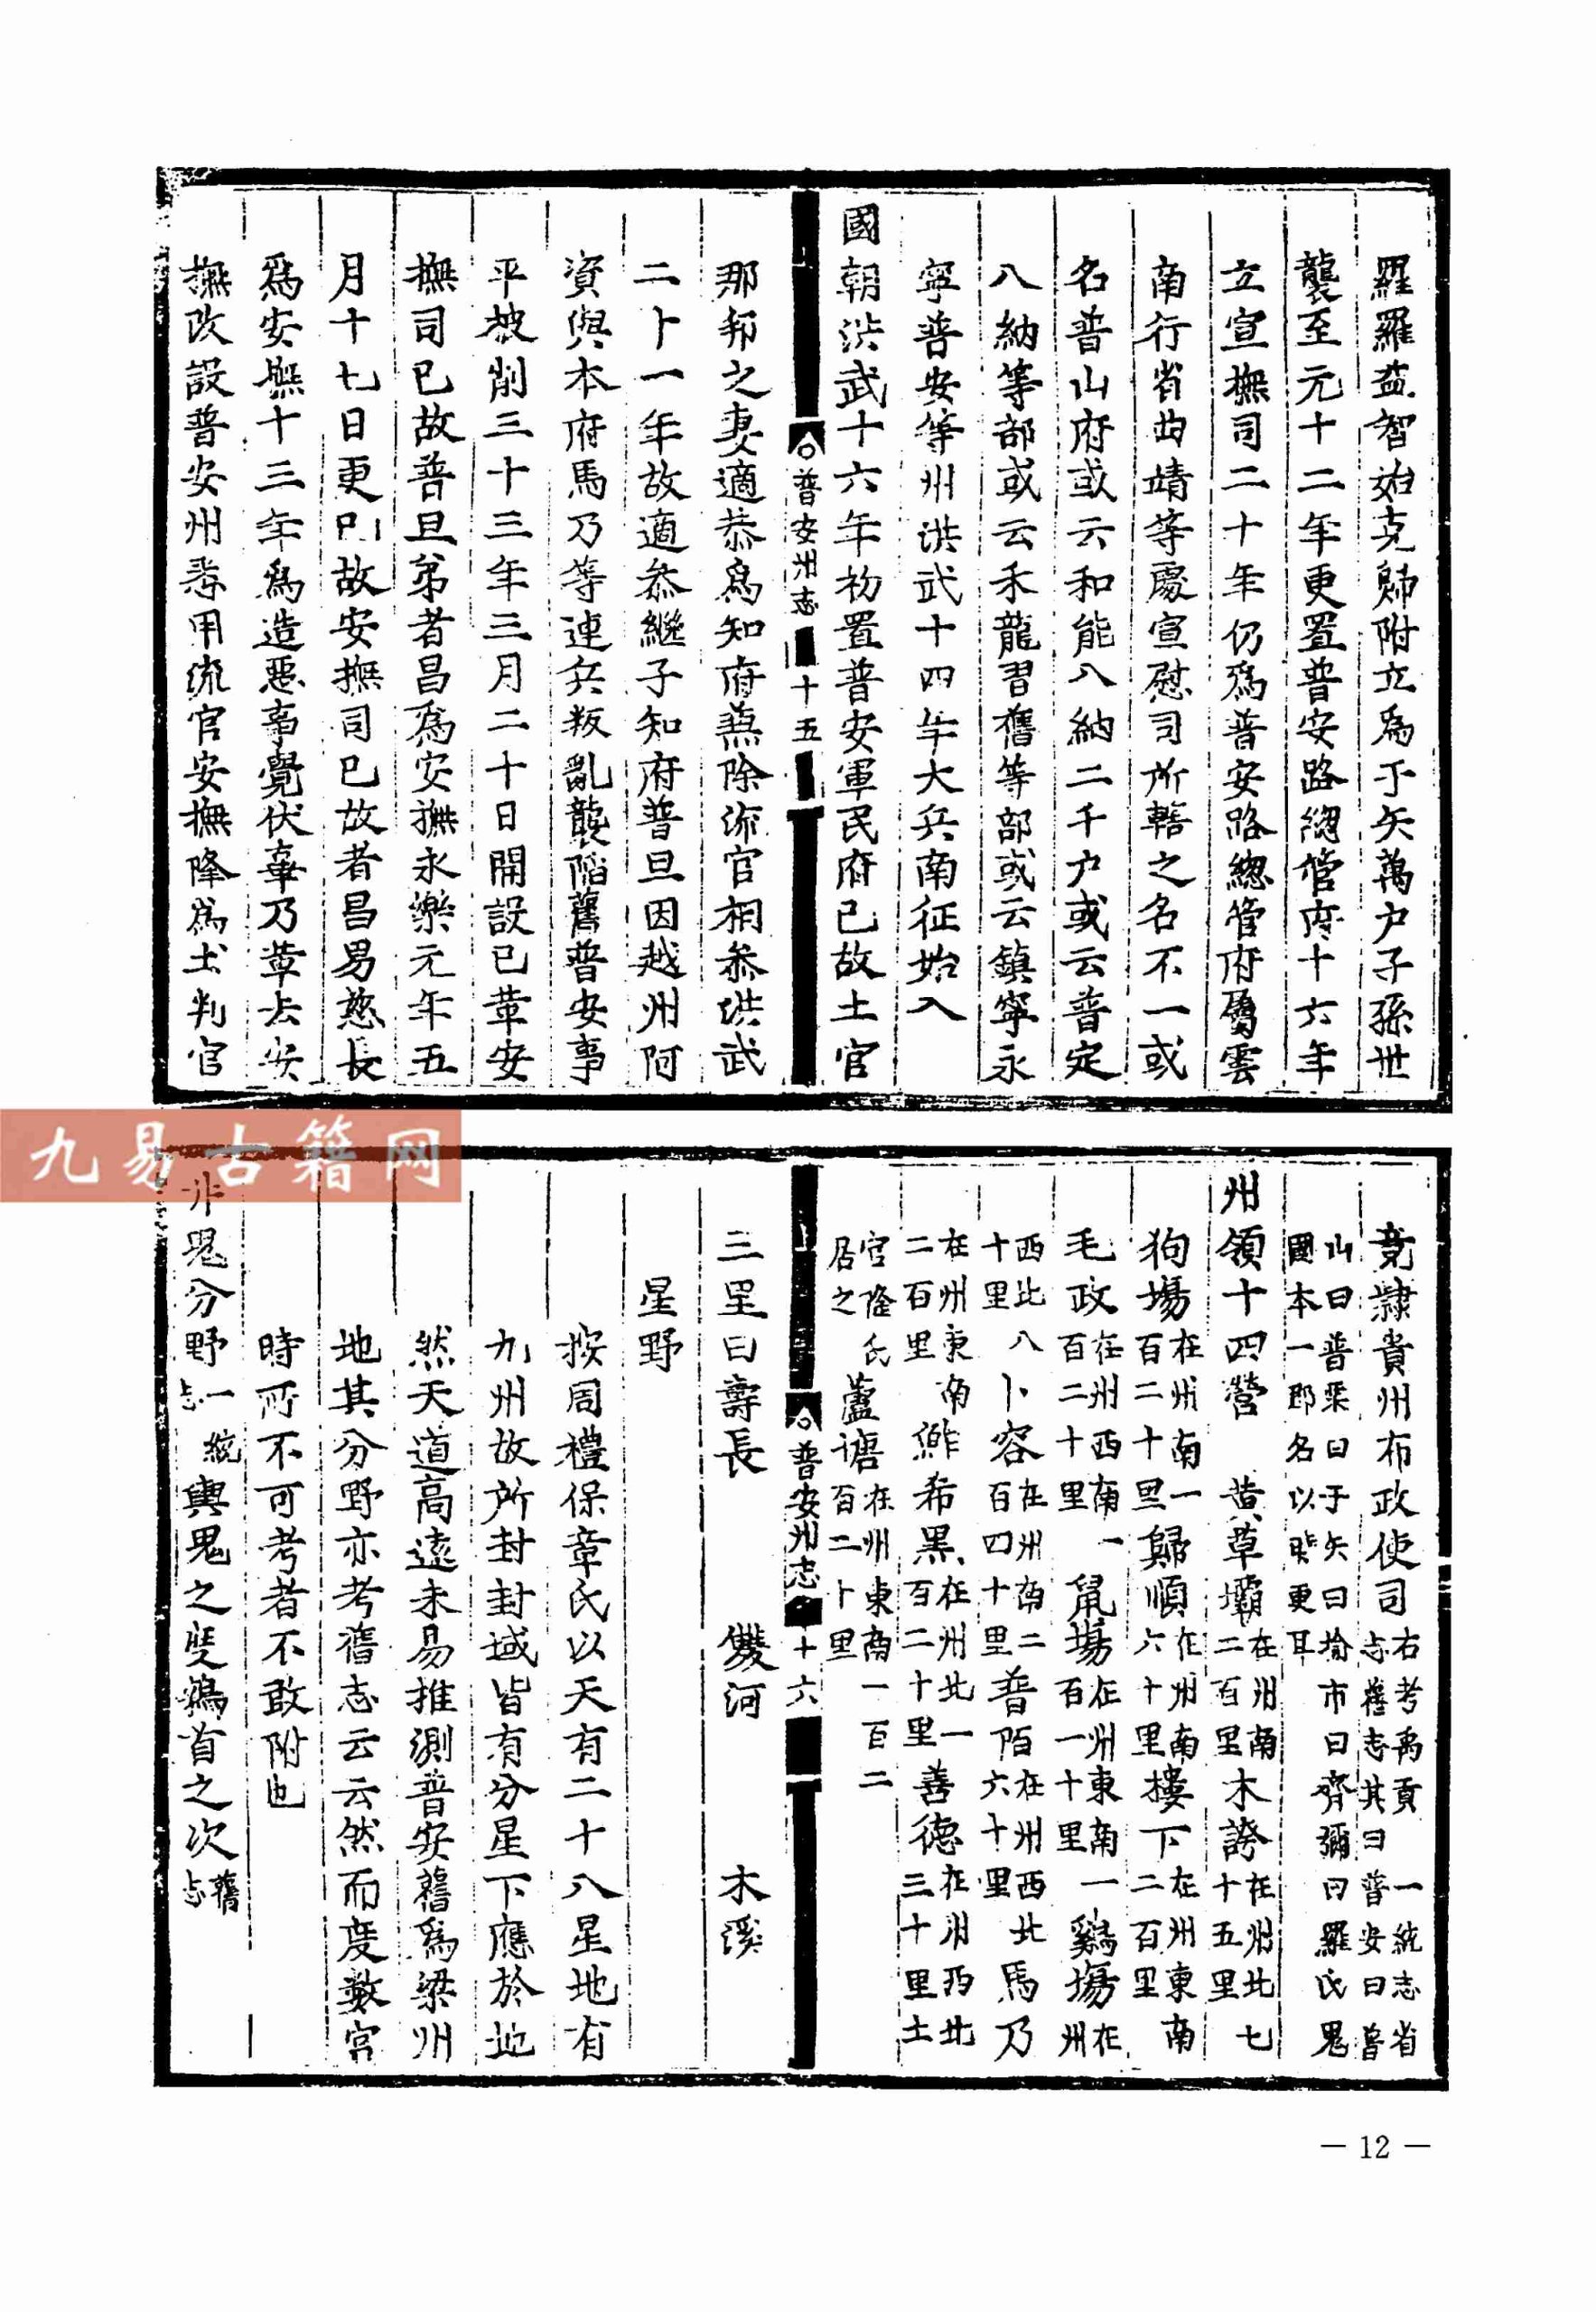 羅羅益智始克歸附立爲于矢萬户子孫世
襲至元十二年更置普安路總管府十六年
立宣撫司二十年仍爲普安路總管府屬雲
南行省曲靖等處宣慰司所轄之名不一或
名普山府或云和能八納二千户或云普定
八納等部或云禾龍習舊等部或云鎮寧永
寧普安等州洪武十四年大兵南征始入
國朝洪武十六年初置普安軍民府已故土官
普安州志 十五
那邦之妻適恭爲知府無除流官相叅洪武
二十一年故適恭繼子知府普旦因越州阿
資與本府馬乃等連兵叛亂襲陷舊普安事
平被削三十三年三月二十日開設已革安
撫司已故普旦弟者昌爲安撫永樂元年五
月十七日更已故安撫司已故者昌易慈長
爲安撫十三年爲造惡事覺伏辜乃革去安
撫改設普安州悉用流官安撫降爲土判官
竟隷貴州布政使司右考禹貢一統志省
志舊志其曰普安曰普
山曰普梁曰于矢曰揄市曰齊彌曰羅氏鬼
國本一郡名以時更耳
州領十四營 黄草壩在州南二百里木誇在州北七十五里
狗塲在州南一百二十里歸順在州南六十里樓下在州東南二百里
毛政在州西南一百二十里鼠塲在州東南一百一十里鷄塲在州
西北八十里卜容在州南二百四十里普陌在州西北六十里馬乃
在州東南二百里鮓希黑在州北一百二十里善德在州西北三十里土
官隆氏居之蘆塘在州東南一百二百二十里
普安州志 十六
三里曰壽長 雙河 木溪
星野
按周禮保章氏以天有二十八星地有
九州故所封封域皆有分星下應於地
然天道高遠未易推測普安舊爲梁州
地其分野亦考舊志云云然而度數宫
時所不可考者不敢附也
井鬼分野一統志輿鬼之墟鶉首之次舊志
— 12 —
九易古籍网